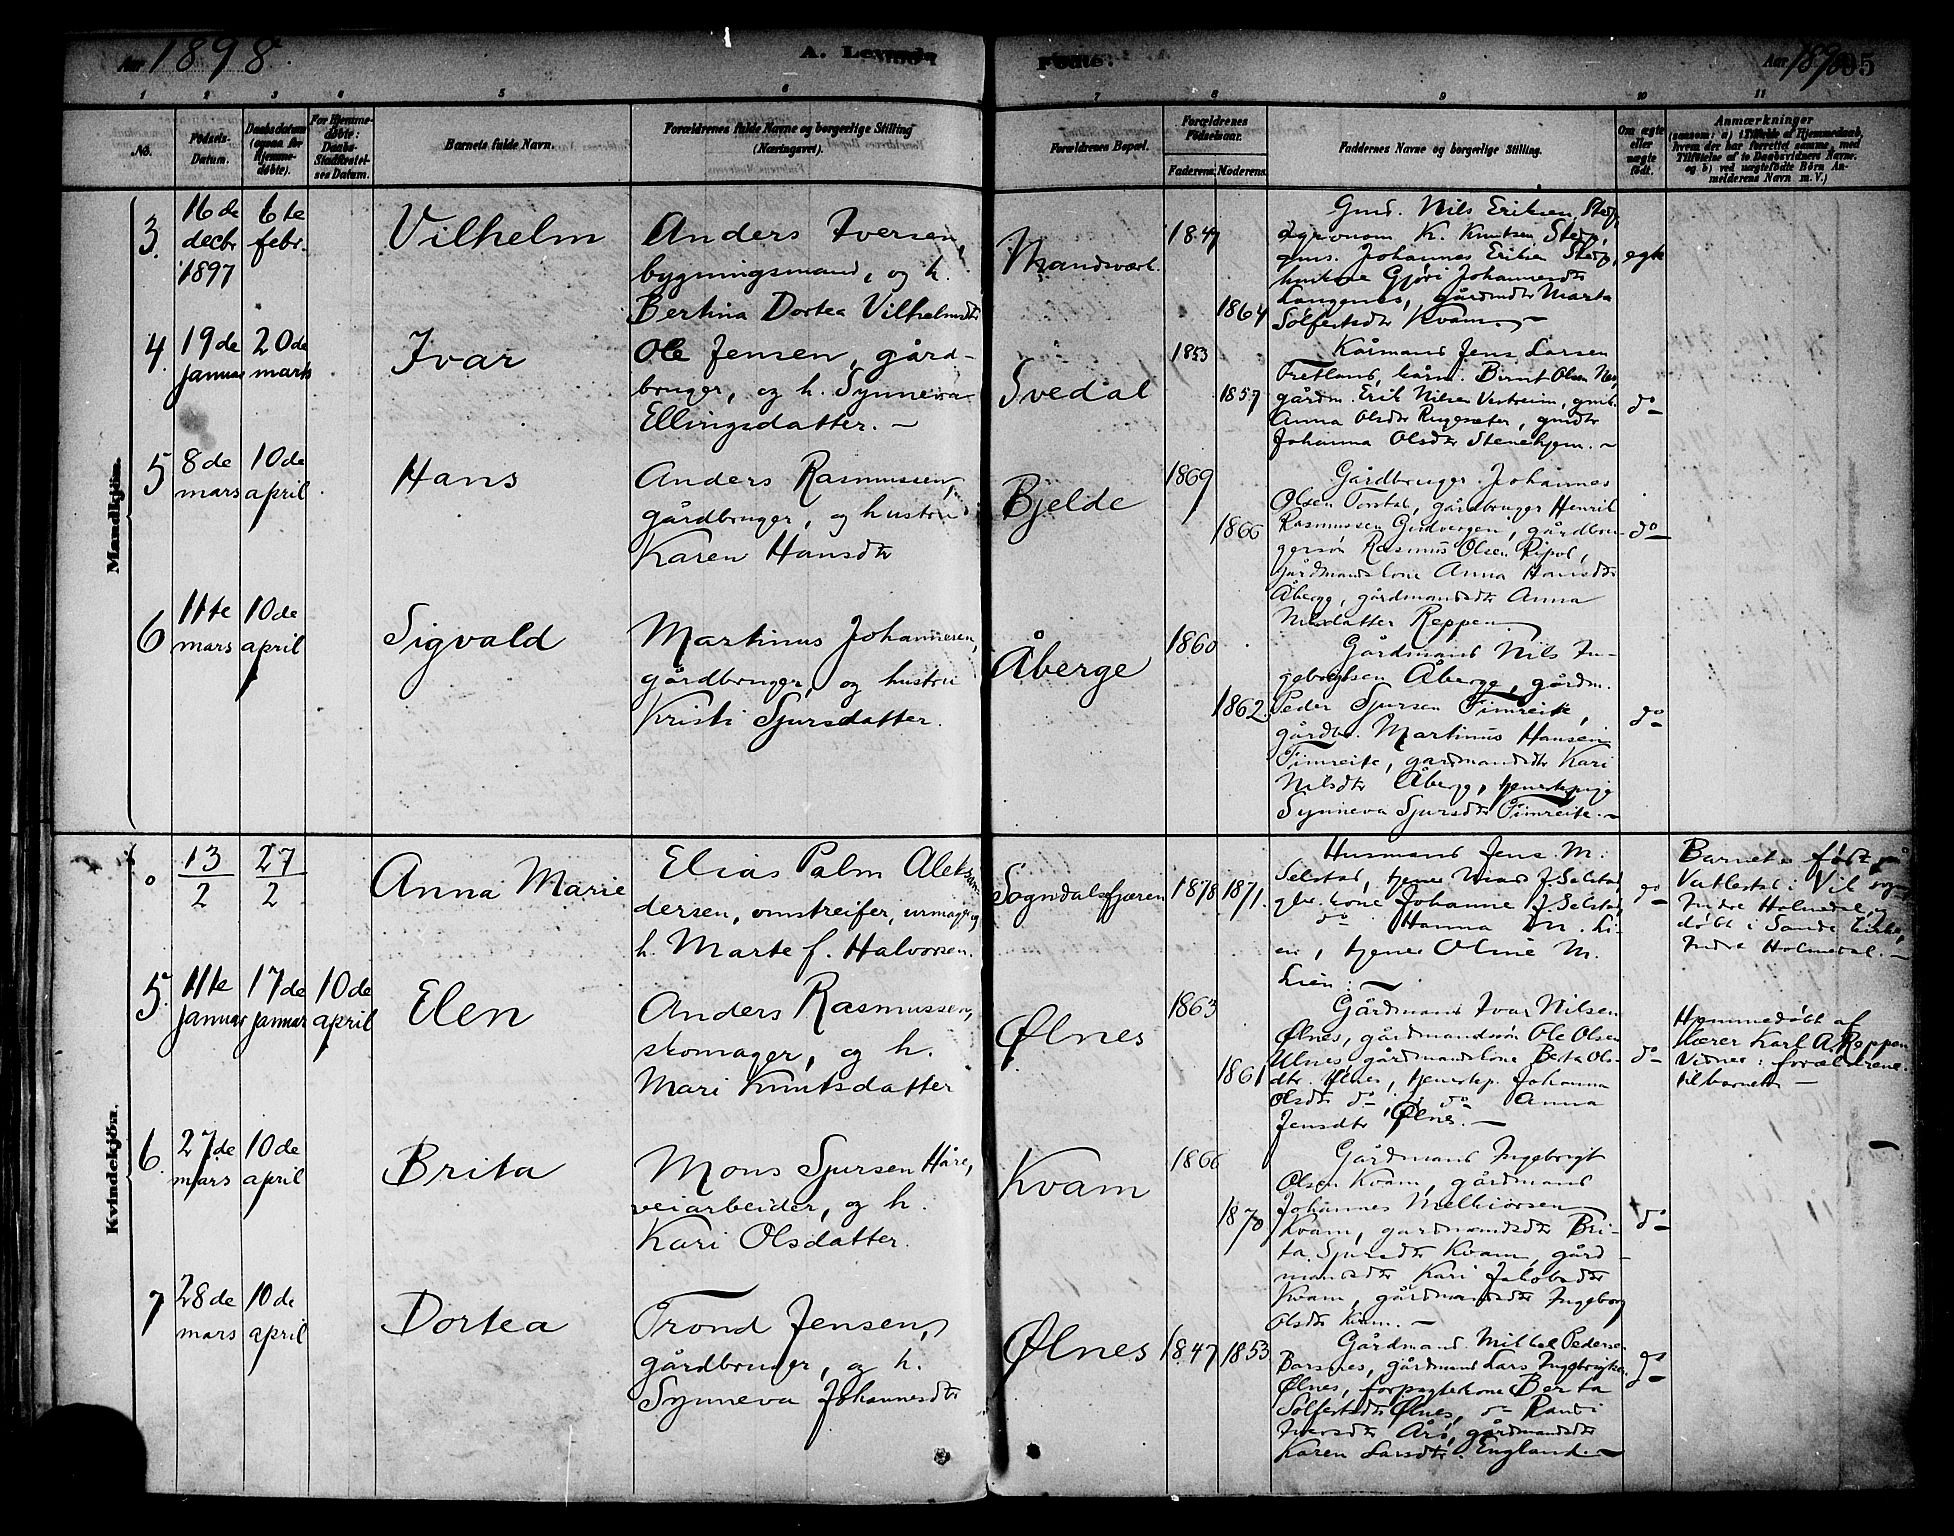 Aar 1898. A. Levende
Fødte. Aar 1898 95
1 2 3 4 5 6
7 8 9 10 11
No.
Fødsels-
Datum.
Daabsdatum
(ogsaa for
Hjemme-
døbte).
For Hjemme-
døbte:
Daabs-
Stadfæstel-
ses Datum.
Barnets fulde Navn.
Forældrenes fulde Navne og borgerlige Stilling
(Næringsvei).
Forældrenes Bopæl.
Forældrenes
Fødselsaar.
Faderens. Moderens.
Faddernes Navne og borgerlige Stilling.
Om ægte
eller
uægte
født.
Anmærkninger
(saasom: a) i Tilfælde af Hjemmedaab,
hvem der har forrettet samme, med
Tilføielse af to Daabsvidners Navne,
og b) ved uægtefødte Børn An-
melderens Navn m. V.)
Mandkjön.
3.
16de
decbr
1897
6te
febr.
Vilhelm
Anders Iversen,
bygningsmand, og h.
Bertina Dortea Vilhelmsdtr
1847
1864
Gmd. Nils Eriksen
agronom K. Knutsen
gms. Johannes Eriksen
Gjøri Johannesdtr
Langenes, gårdmdtr Marta
Sølfestsdtr Kvam. –
egte
4.
19de
januar
20de
marts
Ivar
Ole Jensen, gård-
bruger, og h. Synneva
Ellingsdatter. –
Svedal
1853
1857
Kårmand Jens Larsen
kårm. Bernt Olsen
gårdm. Erik Nilsen
Anna Olsdtr gmdtr
Johanna Olsdtr Stenehjem. –
do –
5
8de
mars
10de
april
Hans
Anders Rasmussen,
gårdbruger, og hustru
Karen Hansdtr
Bjelde
1869
1866
Gårdbruger Johannes
Olsen gårdbruger Henrik
Rasmussen Gudvangen, gårdbru-
gersøn Rasmus Olsen
gårdmandskone Anna Hansdtr
Åberge, gårdmandsdtr Anna
Nilsdatter Reppen.
do –
6
11te
mars
10de
april
Sigvald
Martinus Johannesen,
gårdbruger, og hustru
Kristi Sjursdatter.
Åberge
1860
1862.
Gårdmand Nils In-
gebrigtsen Åberge, gårdm.
Peder Sjursen Timreite,
gårdbr. Martinus Hansen
Timreite, gardmandsdtr Kari
Nilsdtr Åberge, tjenestepige
Synneva Sjursdtr Timreite. –
do –
Kvindekjön.
0
13/2
27/2
Anna Marie
Elias Palm Aleksan-
dersen, omstreifer, urmager, og
h. Marte f. Halvorsen.
Sogndalsfjæren
1878
1871.
Husmand Jens M.
Selstad, tjener J. Selstad,
gbr. kone Johanne J. Selstad,
do Hanna M. Li-
en, tjener Oline M.
Lien. –
do –
Barnet er født på
Vatlestad i
Indre Holmedal, og
døbt i Sande kirke,
Indre Holmedal. –
5.
11te
januar
17de
januar
10de
april
Elen
Anders Rasmussen,
skomager, og h.
Mari Knutsdatter
Ølnes
1863
1861
Gårdmand Ivar Nilsen
Ølnes, gårdmandssøn Ole Olsen
Ølnes, gårdmandskone Berta Ols-
dtr. Ølnes, tjenestep. Johanna
Olsdtr do –, do – Anna
Jensdtr Ølnes. –
do –
Hjemmedøbt af
lærer Karl A. Reppen
Vidner: forældrene
til barnet –
6.
27de
mars
10de
april
Brita
Mons Sjursen Håre,
veiarbeider, og h.
Kari Olsdatter.
Kvam
1866
1870
Gårdmand Ingebrigt
Olsen Kvam, gårdmand
Johannes Melkiorsen
Kvam, gardmandsdtr Bri-
ta Sjursdtr Kvam, gård-
mandsdtr Kari Jakobsdtr
Kvam, gårdmandsdtr Ingeborg
Olsdtr Kvam. –
do –
7
28de
mars
10de
april
Dortea
Trond Jensen,
gårdbruger, og h.
Synneva Johannesdtr
Ølnes
1847
1853
Gårdmand Mikkel Pedersen
Barsnes, gårdmand Lars Ingebrigtsen
Ølnes, forpagterkone Berta
Sølfestsdtr Ølnes, do – Randi
Iversdtr Årø, gårdmandsdtr
Karen Larsdtr England. –
do –